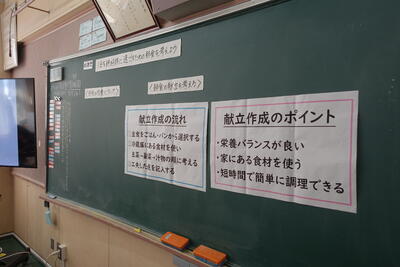 1日を元気に過ごすための朝食を考えよう
献立作成の流れ
主食をごはん・パンから選択する
冷蔵庫にある食材を使い
主菜→副菜→汁物の順に考える
工夫した点を記入する
献立作成のポイント
・栄養バランスが良い
・家にある食材を使う
・短時間で簡単に調理できる